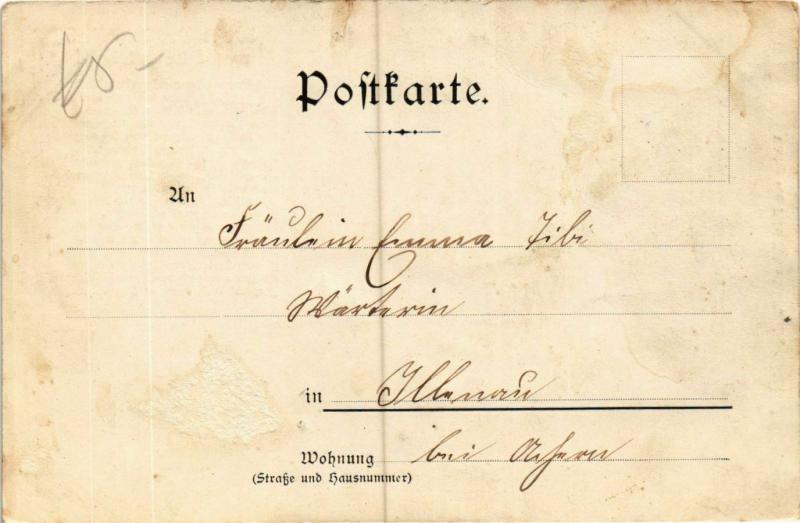 Postkarte.
An
Fräulein Emma Zibi
Wärterin
in Illenau
Wohnung bei Achern
(Straße und Hausnummer)